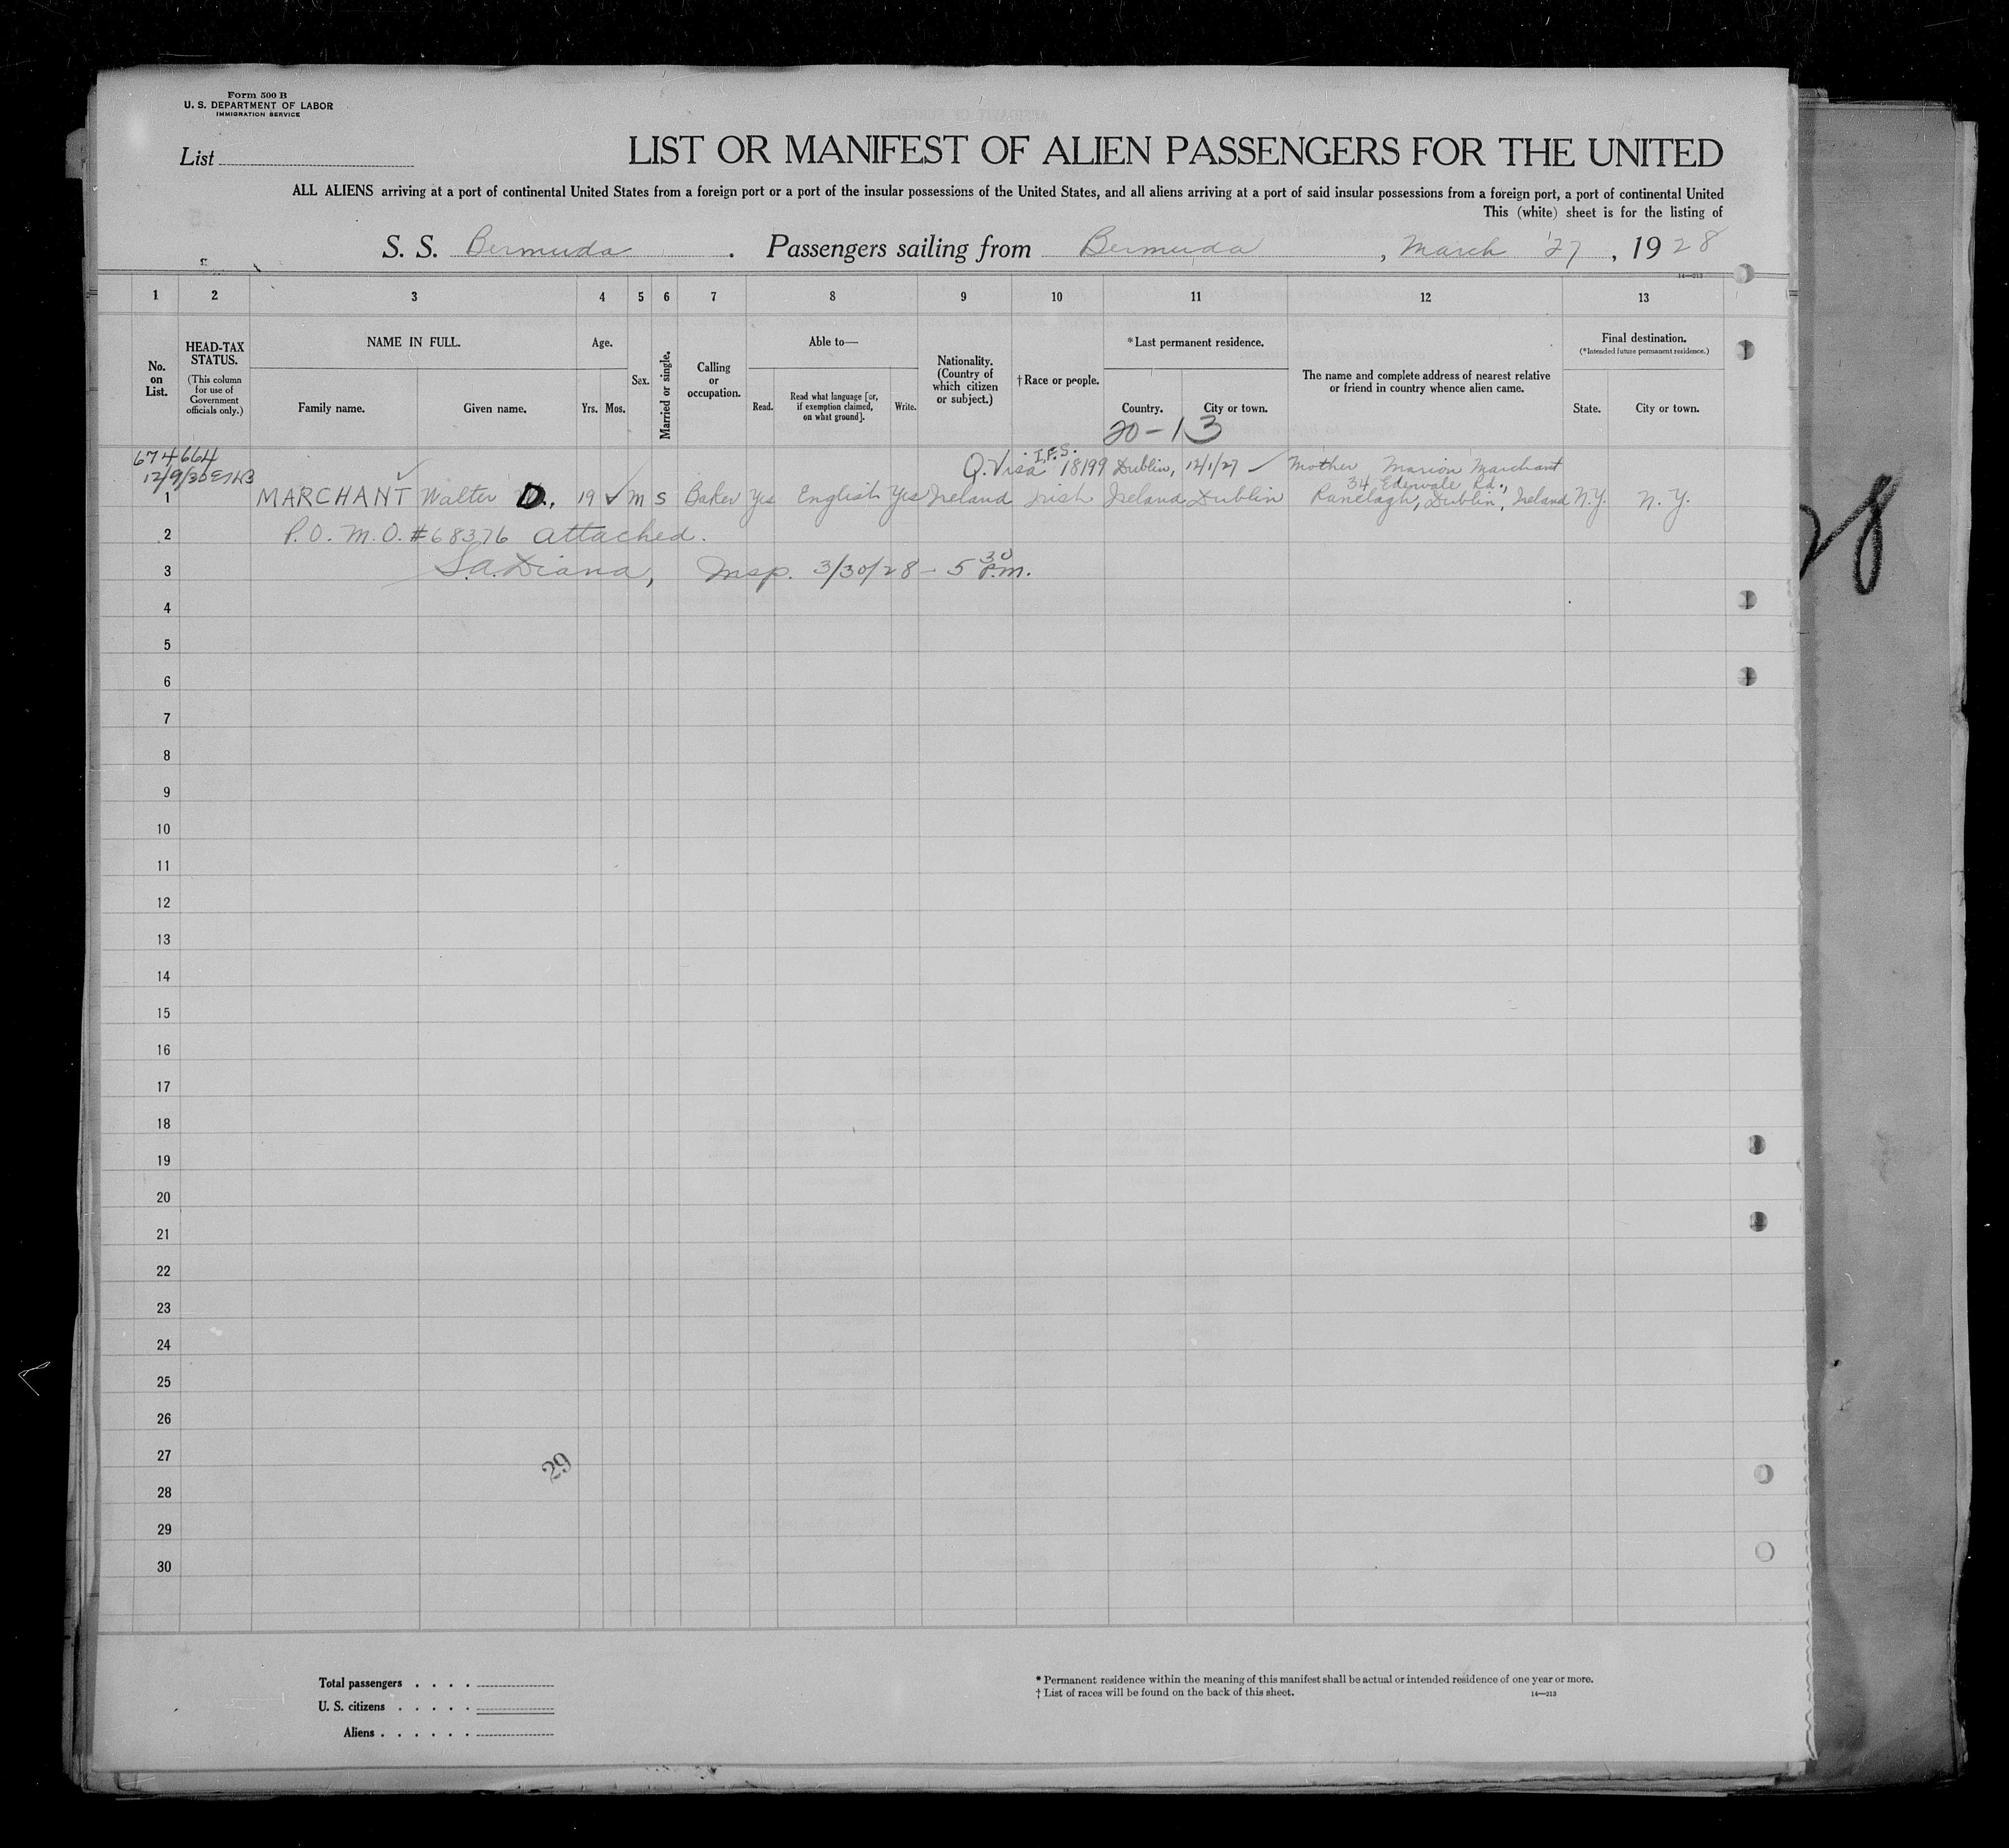 Form 500 B
U. S. DEPARTMENT OF LABOR
IMMIGRATION SERVICE
List
LIST OR MANIFEST OF ALIEN PASSENGERS FOR THE UNITED
ALL ALIENS arriving at a port of continental United States from a foreign port or a port of the insular possessions of the United States, and all aliens arriving at a port of said insular possessions from a foreign port, a port of continental United
This (white) sheet is for the listing of
S. S. Bermuda. Passengers sailing from Bermuda, March 27, 1928
14—213
1 2 3 4 5 6 7 8 9 10 11 12 13
No. on List.
HEAD-TAX STATUS.
(This column for use of Government officials only.)
NAME IN FULL.
Family name. Given name.
Age.
Yrs. Mos.
Sex.
Married or single.
Calling or occupation.
Able to—
Read. Read what language [or, if exemption claimed, on what ground]. Write.
Nationality. (Country of which citizen or subject.)
† Race or people.
* Last permanent residence.
Country. City or town.
20-13
The name and complete address of nearest relative or friend in country whence alien came.
Final destination.
(*Intended future permanent residence.)
State. City or town.
674664
12/9/30
Q. Visa I.F.S. 18199 Dublin, 12/1/27 Mother Marion Marchant
34 Edenvale Rd.,
1 MARCHANT Walter D., 19 m s Baker Yes English Yes Ireland Irish Ireland Dublin Ranelagh, Dublin, Ireland N.Y. N.Y.
2 P.O. M.O. #68376 attached.
3 S.A. Diana, Insp. 3/30/28 - 5 30 P.m.
4
5
6
7
8
9
10
11
12
13
14
15
16
17
18
19
20
21
22
23
24
25
26
27
28
29
30
29
28
Total passengers . . . .
U. S. citizens . . . . .
Aliens . . . . . .
* Permanent residence within the meaning of this manifest shall be actual or intended residence of one year or more.
† List of races will be found on the back of this sheet.
14—213